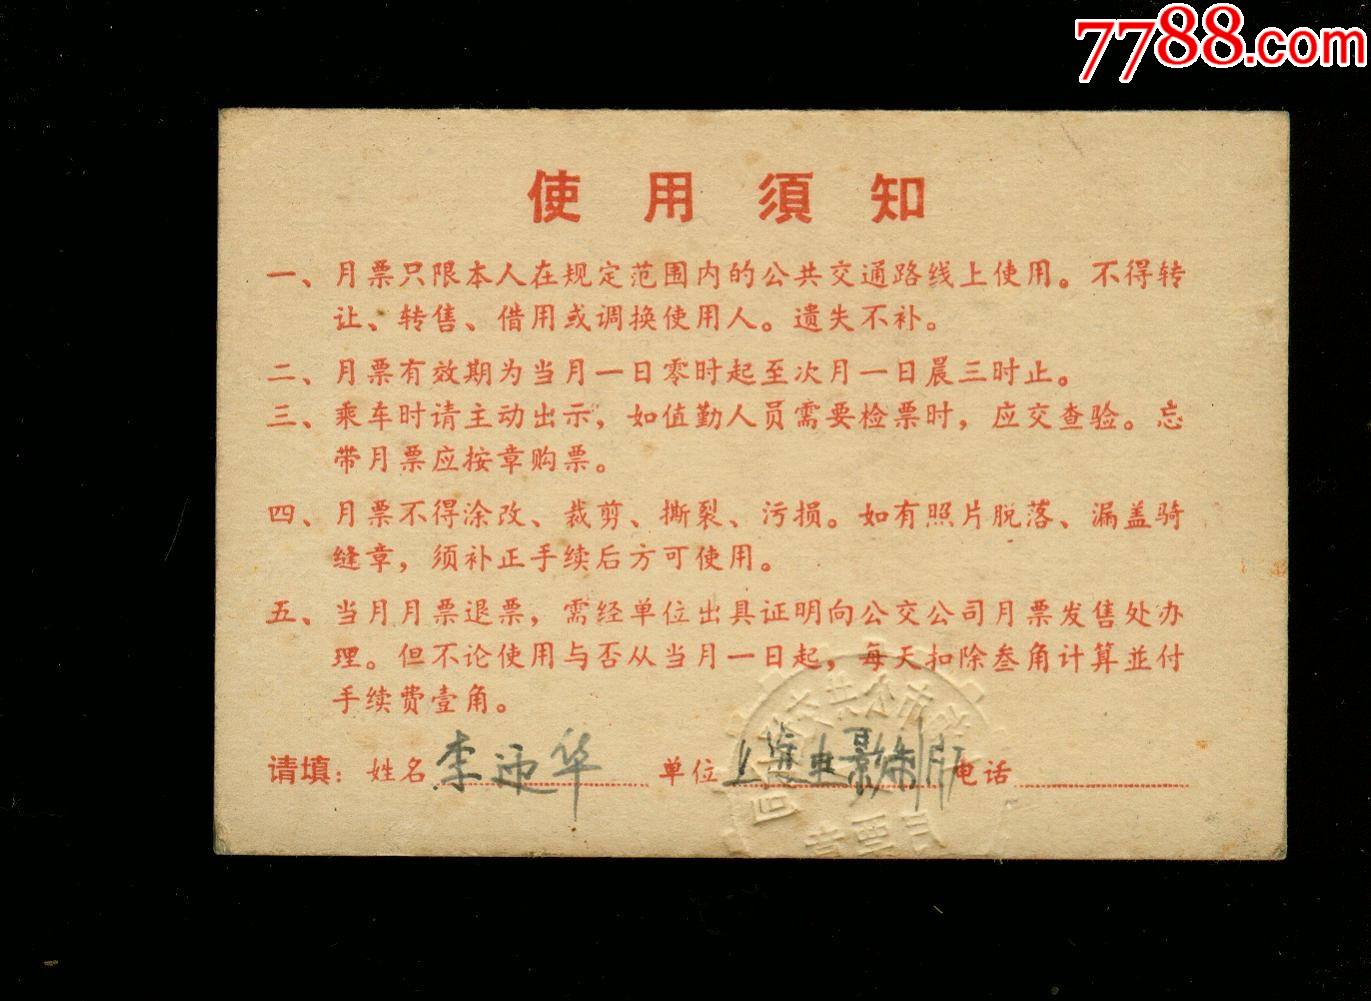 7788.com
使用須知
一、月票只限本人在规定范围内的公共交通路线上使用。不得转
让、转售、借用或调换使用人。遗失不补。
二、月票有效期为当月一日零时起至次月一日晨三时止。
三、乘车时请主动出示，如值勤人员需要检票时，应交查验。忘
带月票应按章购票。
四、月票不得涂改、裁剪、撕裂、污损。如有照片脱落、漏盖骑
缝章，须补正手续后方可使用。
五、当月月票退票，需经单位出具证明向公交公司月票发售处办
理。但不论使用与否从当月一日起，每天扣除叁角计算並付
手续费壹角。
请填：姓名 李 华 单位 上海电影制片厂 电话